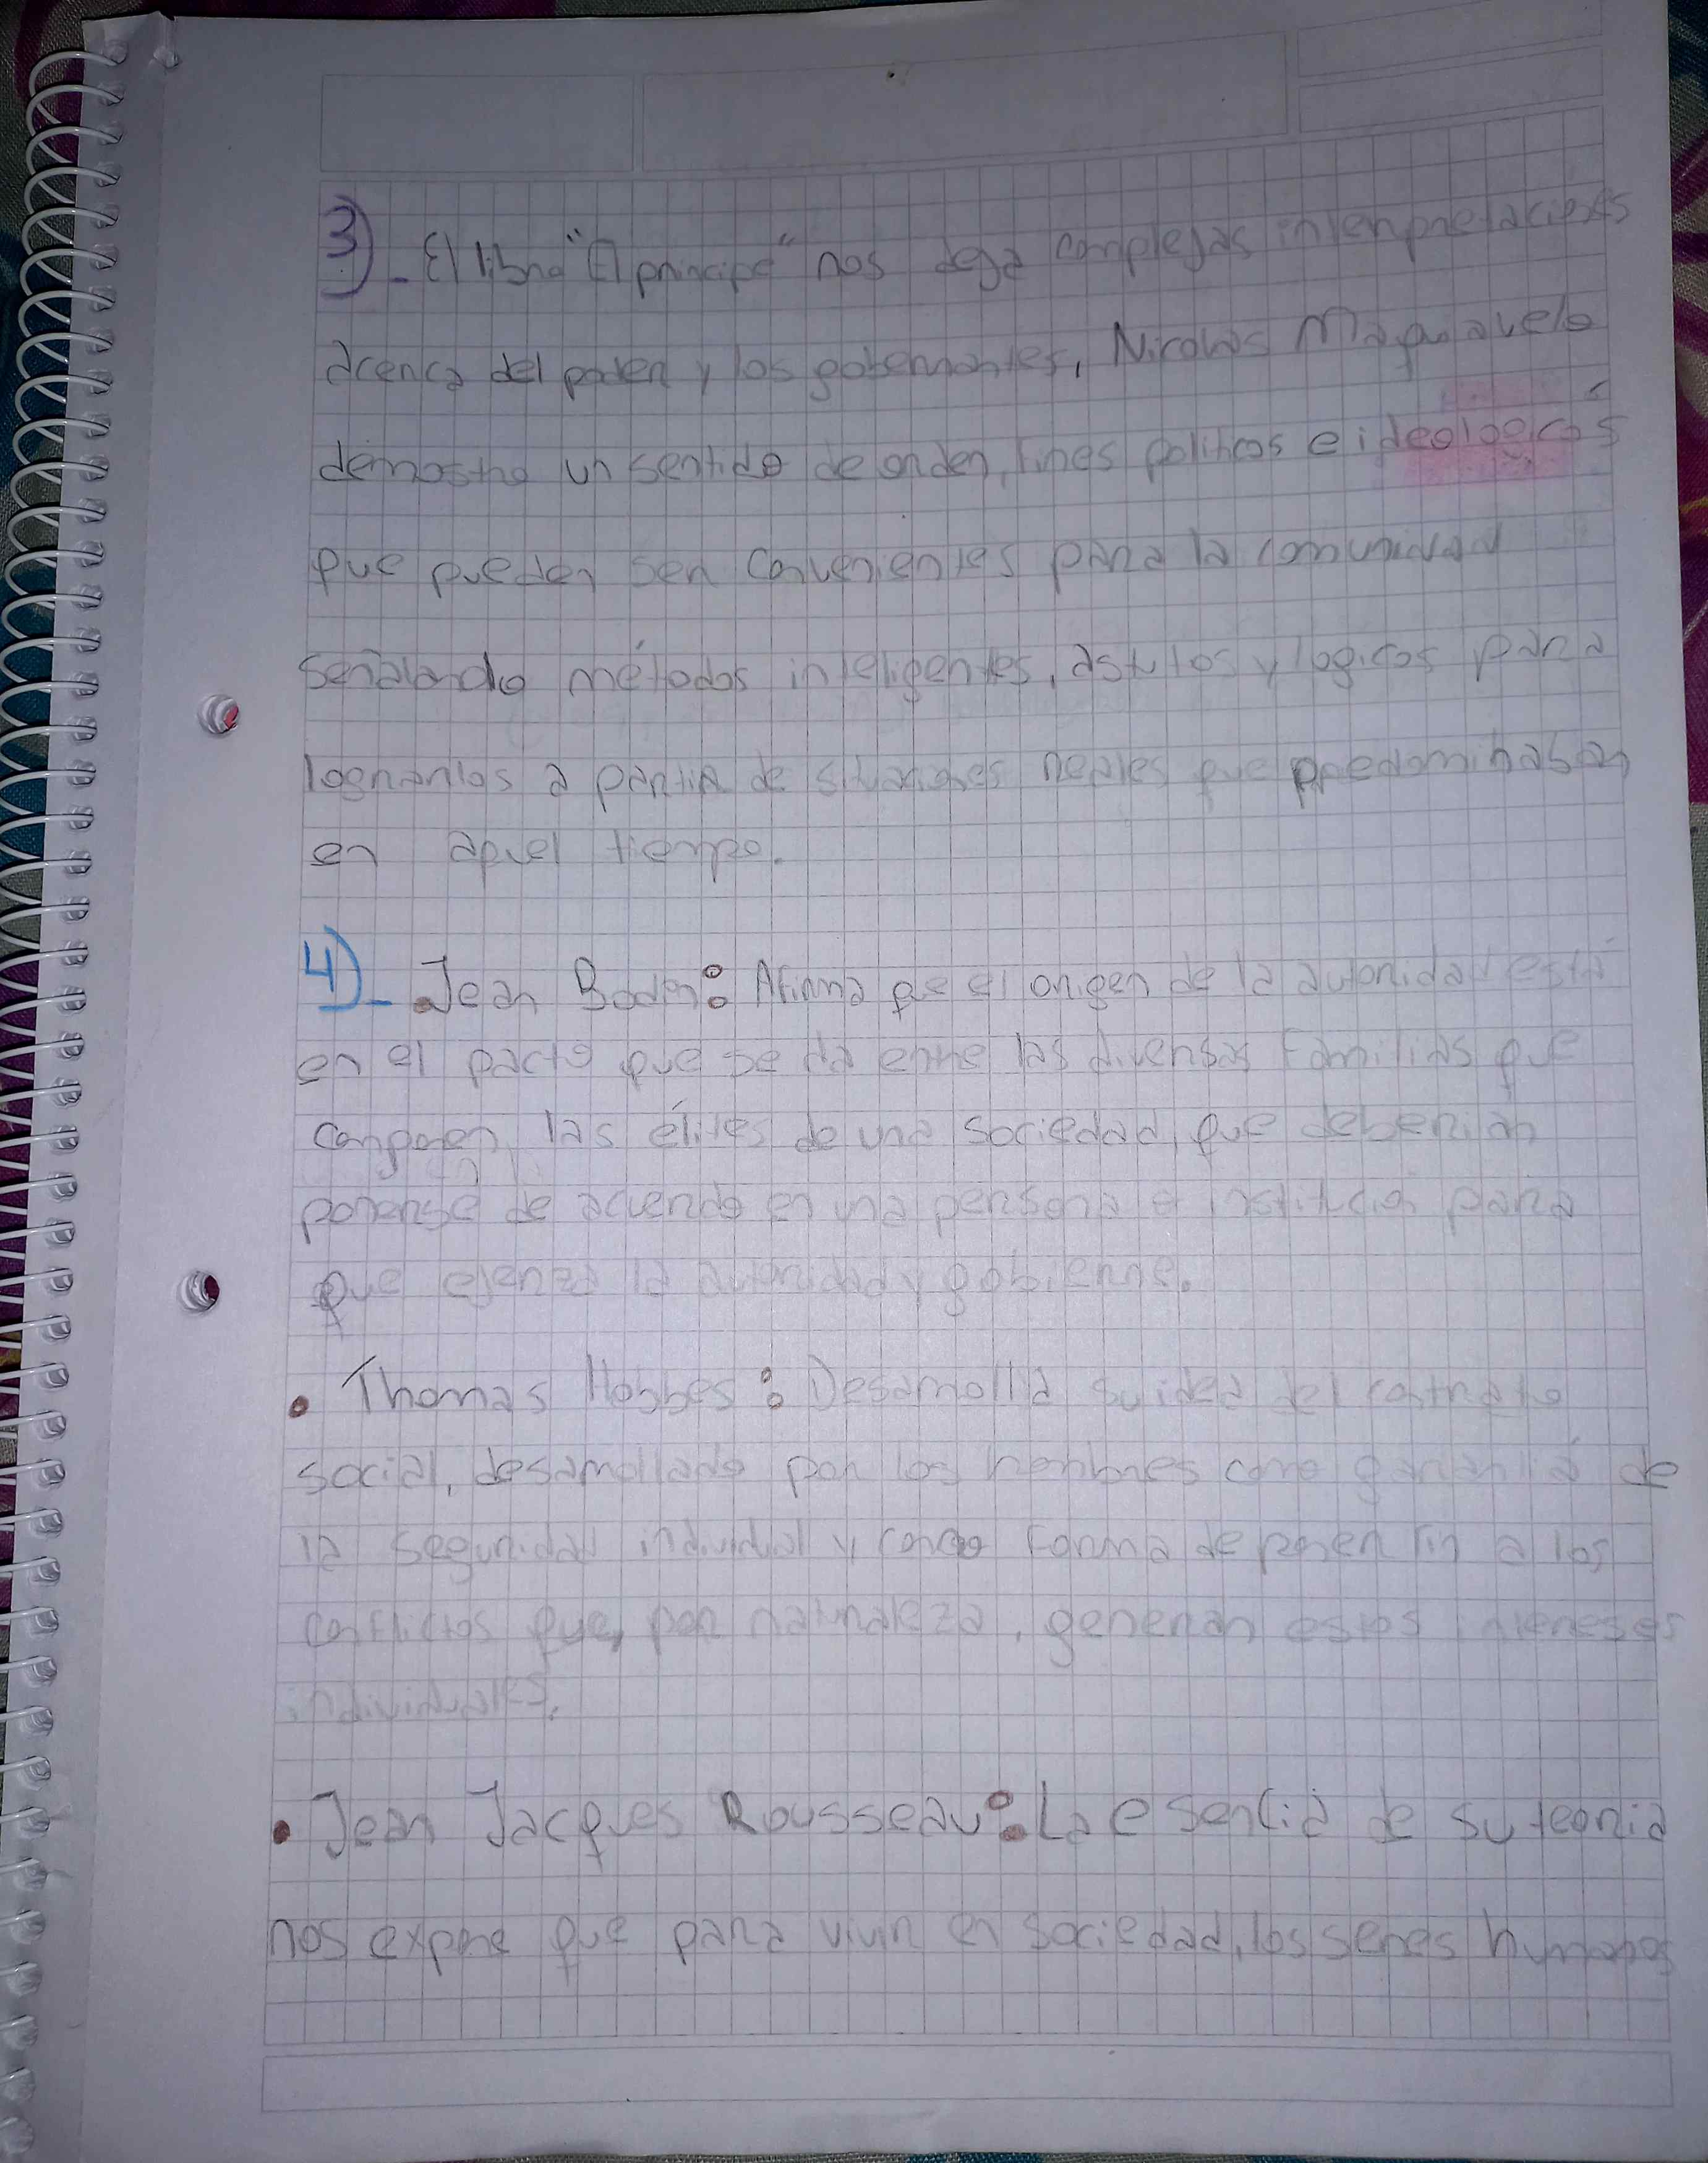 3)- El libro "El principe" nos deja complejas interpretaciones
acerca del poder y los gobernantes, Nicolas Maquiavelo
demostro un sentido de orden, fines politicos e ideológicos
que pueden ser convenientes para la comunidad
señalando métodos inteligentes, astutos y logicos para
lograrlos a partir de situaciones reales que predominaban
en aquel tiempo.
4)- Jean Bodin: Afirma que el origen de la autoridad está
en el pacto que se da entre las diversas familias que
componen las élites de una sociedad, que deberian
ponerse de acuerdo en una persona o institucion para
que ejerza la autoridad y gobierne.
• Thomas Hobbes: Desarrolla su idea del contrato
social, desarrollado por los hombres como garantía de
la seguridad individual y como forma de poner fin a los
conflictos que, por naturaleza, generan estos intereses
individuales.
• Jean Jacques Rousseau: La esencia de su teoria
nos expone que para vivir en sociedad, los seres humanos